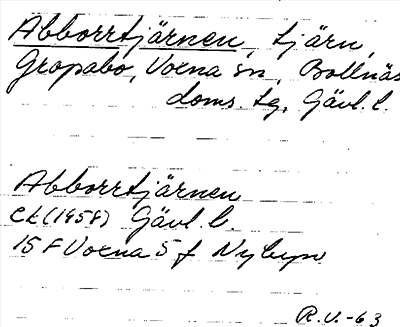 Abborrtjärnen, tjärn,
Gropabo, Voxna sn, Bollnäs
doms. tg, Gävl. l.
Abborrtjärnen
Ek (1958) Gävl. l.
15 F Voxna 5 f Nybyn
R.U.-63